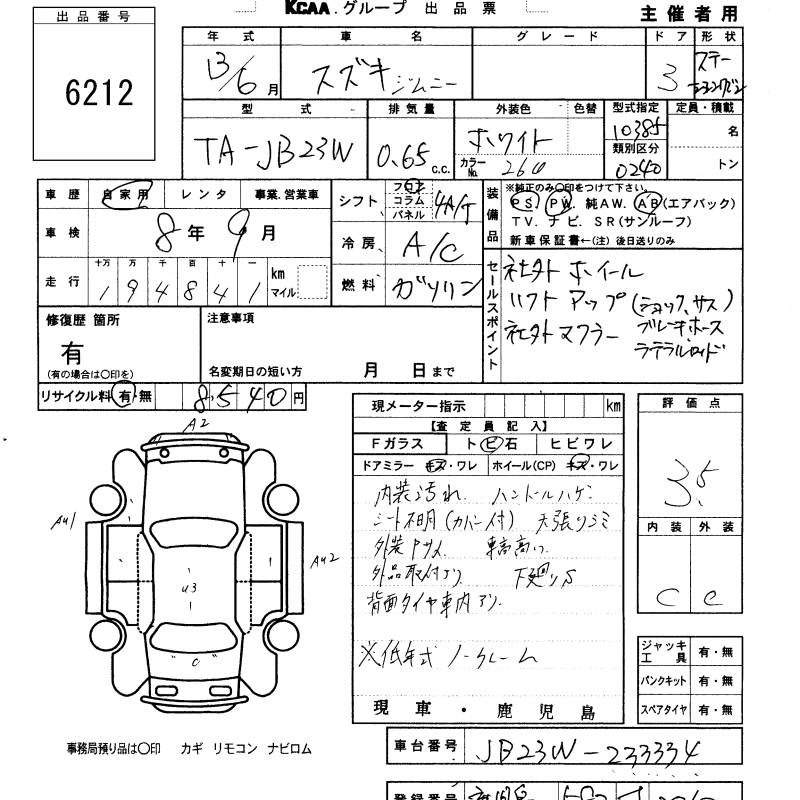 KCAA.グループ 出品票
主催者用
出品番号
6212
年式 車名 グレード ドア 形状
13/6月 スズキ ジムニー 3 ステーションワゴン
型式 排気量 外装色 色替 型式指定 定員・積載
TA-JB23W 0.65 c.c. ホワイト 10385 名
カラーNo. 26U 類別区分 0240 トン
車歴 自家用 レンタ 事業.営業車
車検 8年9月
走行 十万 万 千 百 十 一
194841 km マイル
シフト フロア コラム パネル 4A/T
冷房 A/C
燃料 ガソリン
装備品
※純正のみ○印をつけて下さい。
PS PW. 純AW. AB(エアバック)
TV. ナビ. SR(サンルーフ)
新車保証書←(注) 後日送りのみ
セールスポイント
社外ホイール
リフトアップ(ショック,サス)
社外マフラー ブレーキホース
ラテラルロッド
修復歴 箇所
有
(有の場合は○印を)
注意事項
名変期日の短い方 月 日まで
リサイクル料 有・無 8,540円
A2
AU1
AU2
U3
C
現メーター指示 km
【査定員記入】
Fガラス トビ石 ヒビワレ
ドアミラー キズ・ワレ ホイール(CP) キズ・ワレ
内装汚れ ハンドルハゲ
シート不明(カバー付) 天張りシミ
外装Pサメ 車高高い
外品取付アリ 下廻りS
背面タイヤ車内アリ
※低年式 ノークレーム
現車・鹿児島
評価点
3.5
内装 外装
C C
ジャッキ工具 有・無
パンクキット 有・無
スペアタイヤ 有・無
事務局預り品は○印 カギ リモコン ナビロム
車台番号 JB23W-233334
登録番号